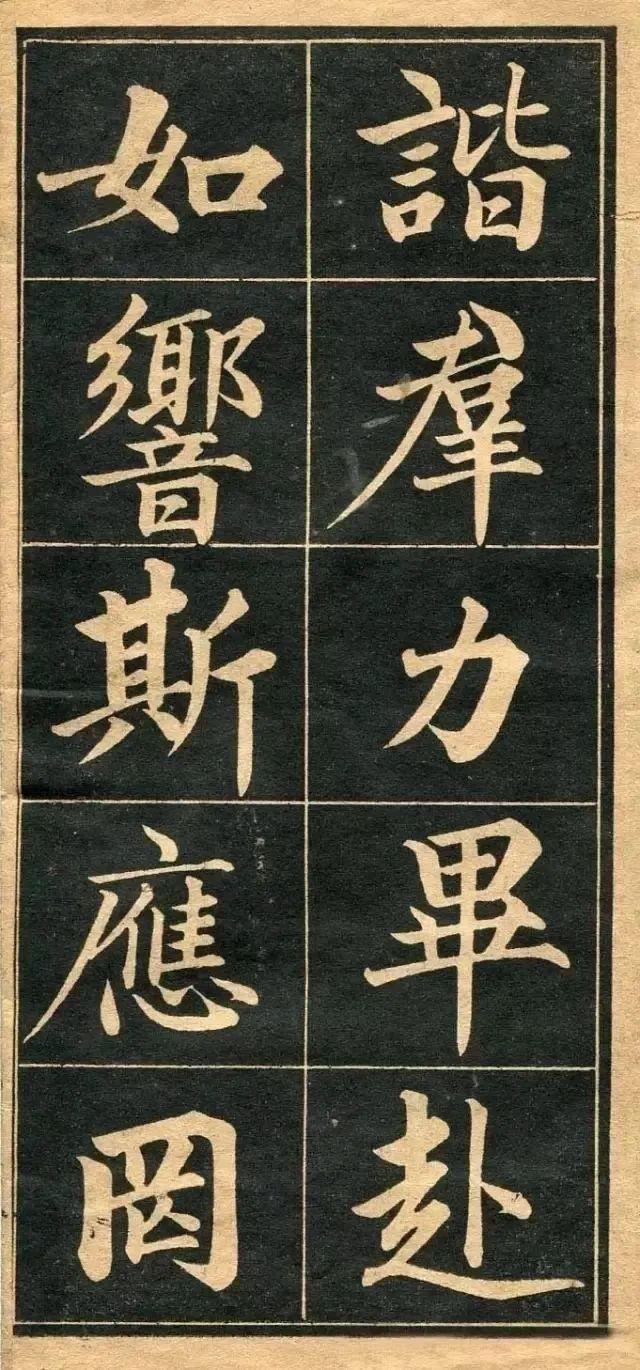 諧羣力畢赴
如響斯應罔